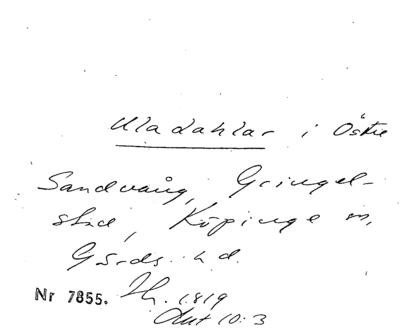 Uladahlar i Östra
Sandvång, Gringel-
stad, Köpinge sn,
Gärds hd.
Nr 7855. Th. 1819
Aut 10:3